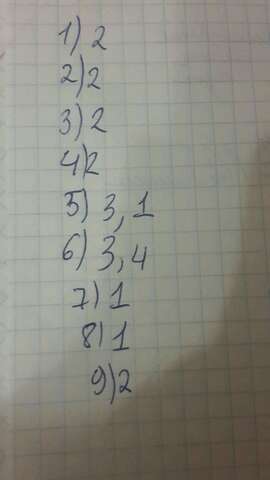 1) 2
2) 2
3) 2
4) 2
5) 3, 1
6) 3, 4
7) 1
8) 1
9) 2